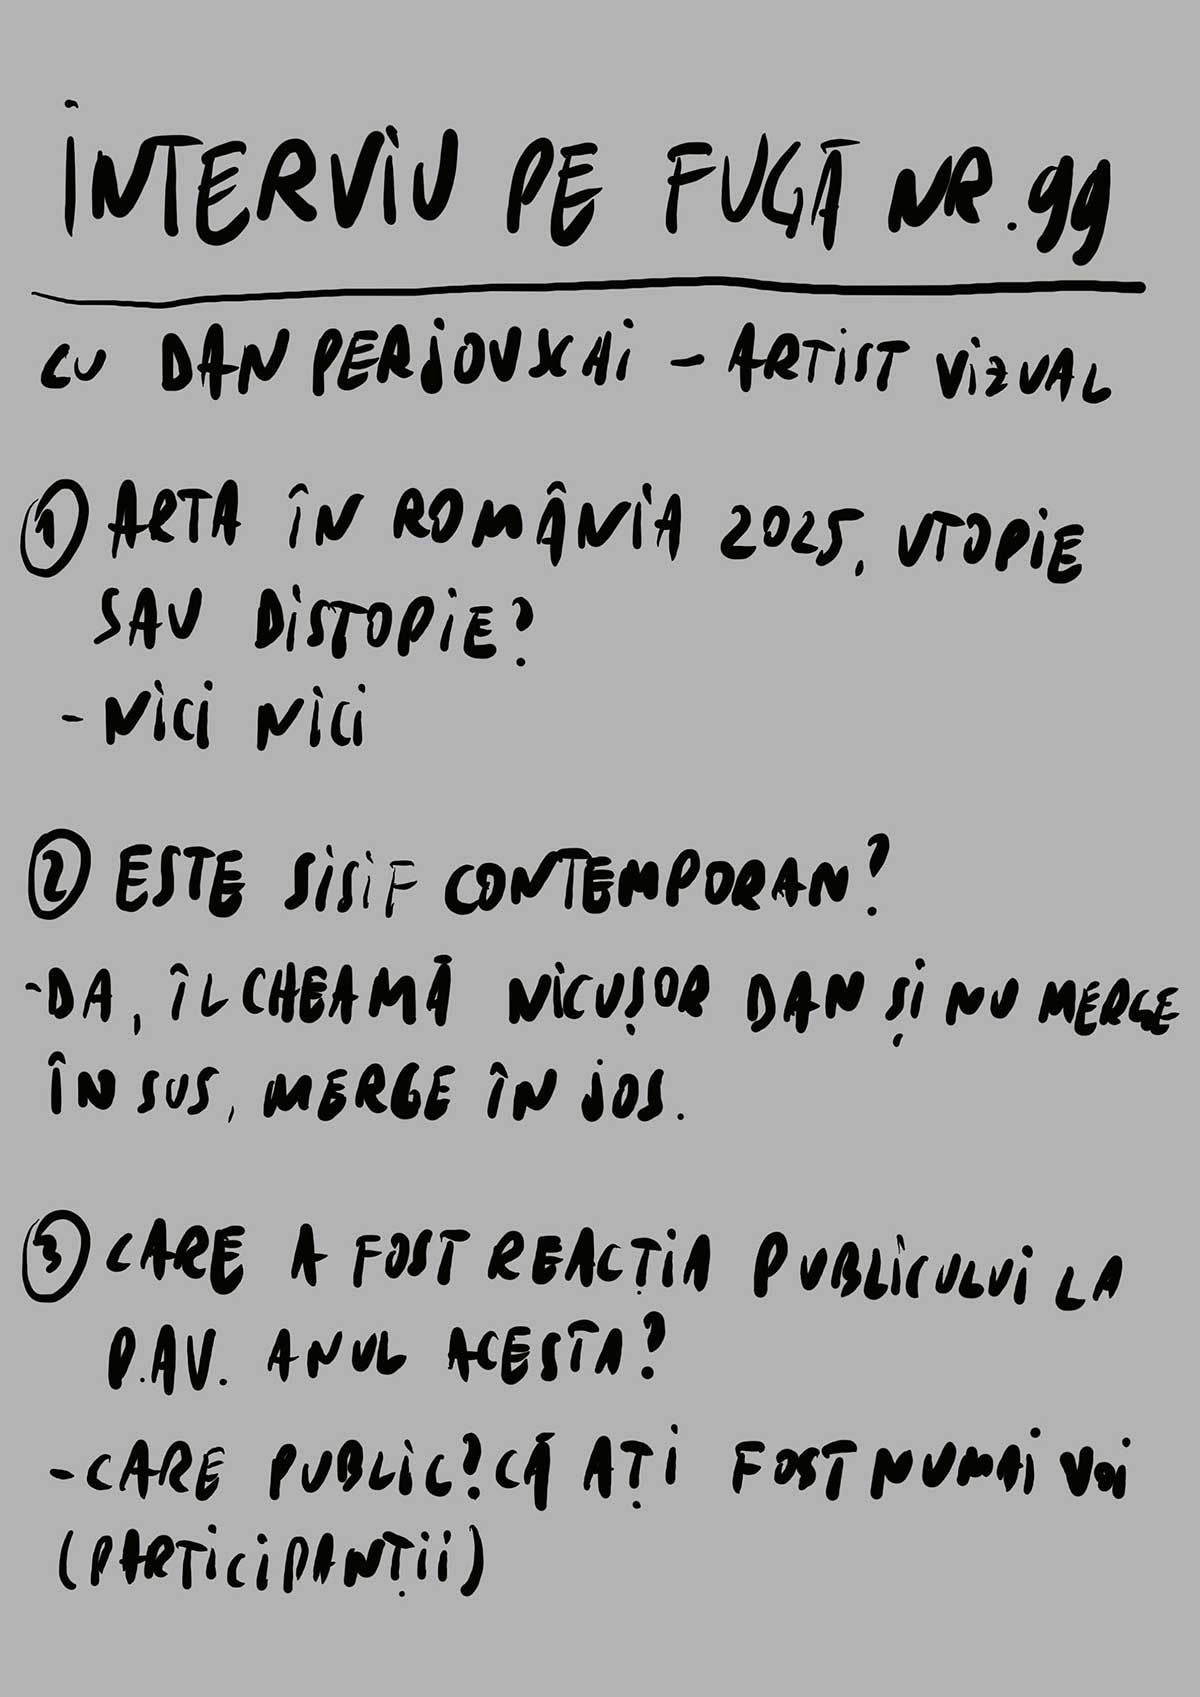 ÎNTERVIU PE FUGĂ NR. 99
CU DAN PERJOVSCHI – ARTIST VIZUAL
① ARTA ÎN ROMÂNIA 2025, UTOPIE
SAU DISTOPIE?
- NICI NICI
② ESTE SISIF CONTEMPORAN?
- DA, ÎL CHEAMĂ NICUȘOR DAN ȘI NU MERGE
ÎN SUS, MERGE ÎN JOS.
③ CARE A FOST REACȚIA PUBLICULUI LA
P.AV. ANUL ACESTA?
- CARE PUBLIC? CĂ AȚI FOST NUMAI VOI
(PARTICIPANȚII)